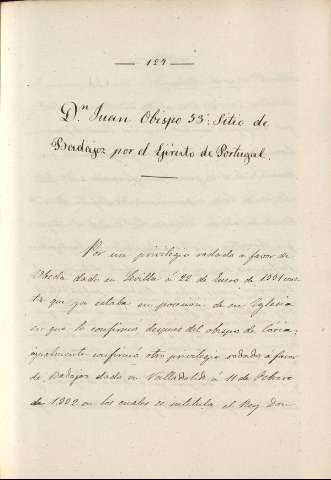 — 127 —
D.n Juan Obispo 33.. Sitio de
Badajoz por el Ejército de Portugal.
Por un privilegio rodado á favor de
Ubeda dado en Sevilla á 22 de Enero de 1331 cons-
ta que ya estaba en posesion de su Iglesia
en que lo confirma despues del obispo de Coria:
igualmente confirmó otro privilegio rodado a favor
de Badajoz dado en Valladolid á 11 de Febrero
de 1332 en los cuales se intitula el Rey Don